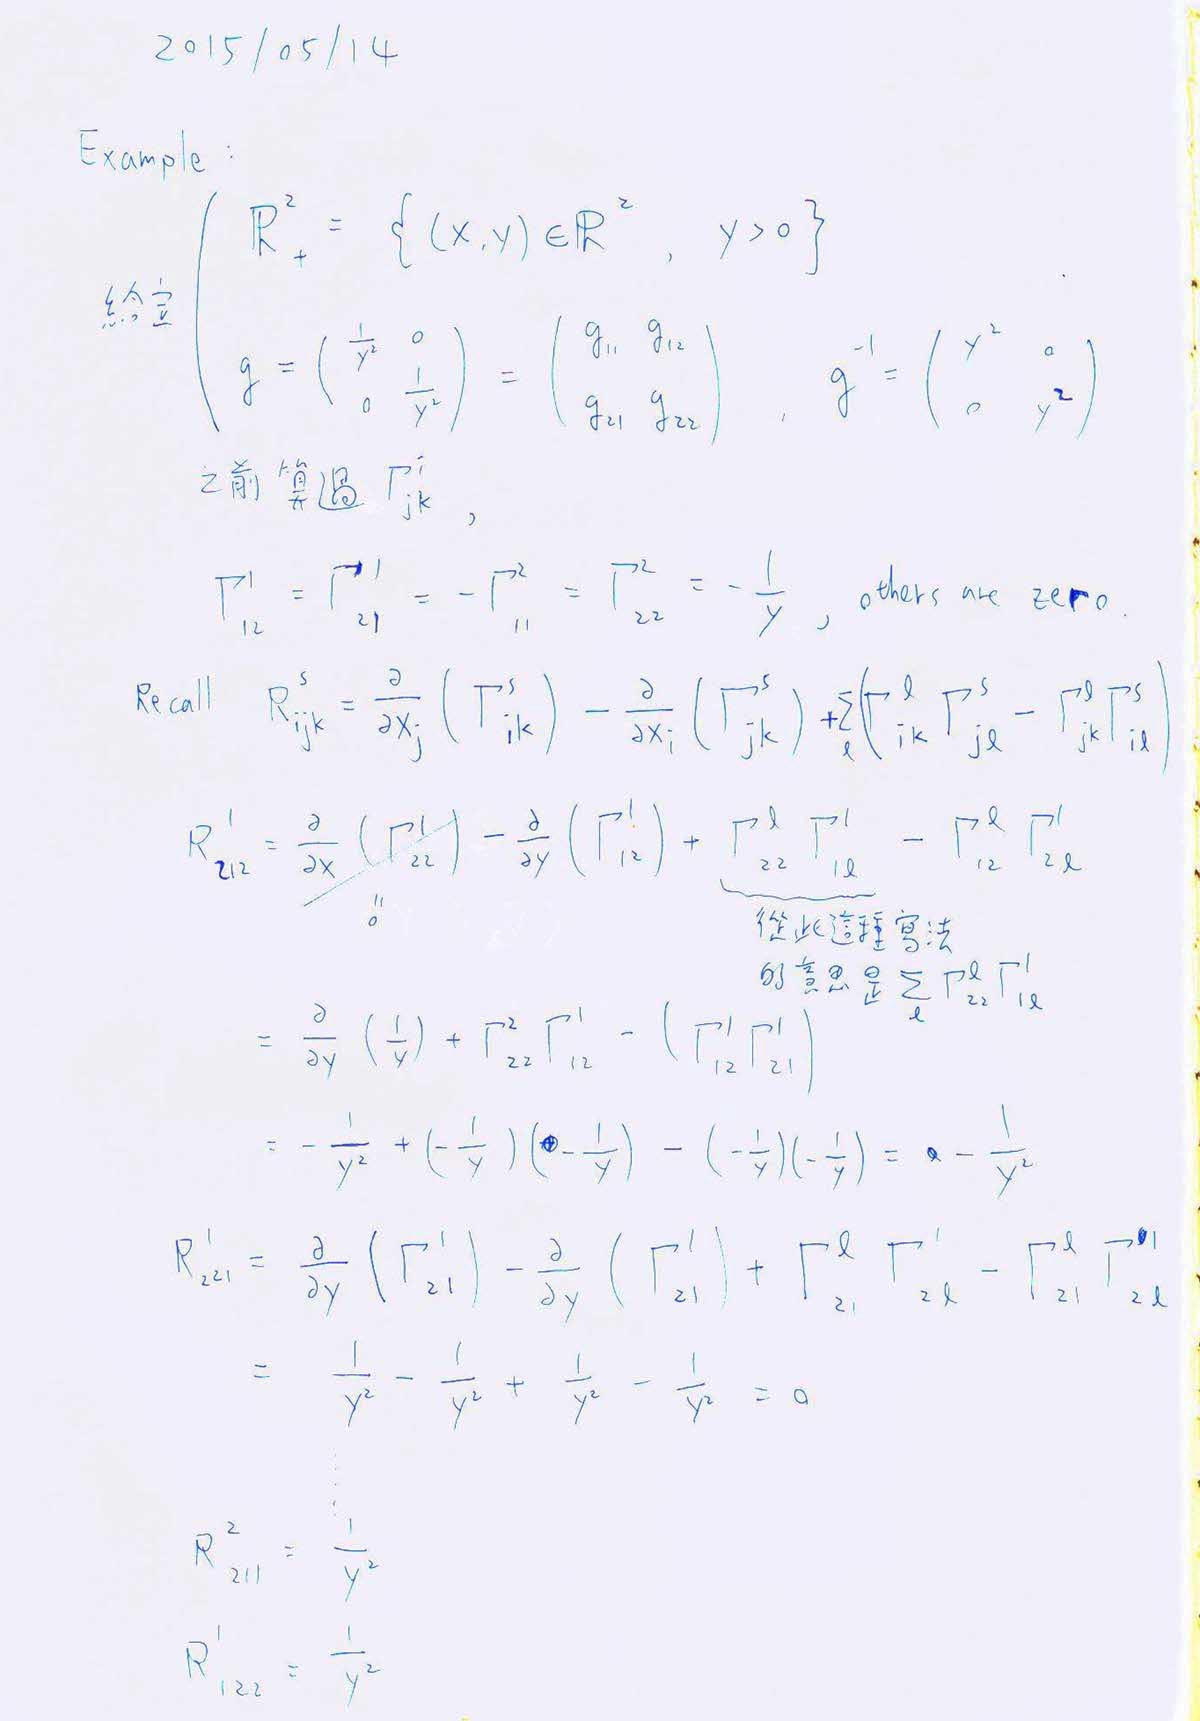 2015/05/14
Example:
給定
ℝ²₊ = {(x,y)∈ℝ², y>0}
g = \begin{pmatrix} \frac{1}{y^2} & 0 \\ 0 & \frac{1}{y^2} \end{pmatrix} = \begin{pmatrix} g_{11} & g_{12} \\ g_{21} & g_{22} \end{pmatrix}, g^{-1} = \begin{pmatrix} y^2 & 0 \\ 0 & y^2 \end{pmatrix}
之前算過 Γ^i_{jk},
Γ^1_{12} = Γ^1_{21} = -Γ^2_{11} = Γ^2_{22} = -\frac{1}{y}, others are zero.
Recall R^s_{ijk} = \frac{∂}{∂x_j}(Γ^s_{ik}) - \frac{∂}{∂x_i}(Γ^s_{jk}) + \sum_l (Γ^l_{ik} Γ^s_{jl} - Γ^l_{jk} Γ^s_{il})
R^1_{212} = \frac{∂}{∂x}(Γ^1_{22}) - \frac{∂}{∂y}(Γ^1_{12}) + Γ^l_{22} Γ^1_{1l} - Γ^l_{12} Γ^1_{2l}
"
0
從此這種寫法
的意思是 \sum_l Γ^l_{22} Γ^1_{1l}
= \frac{∂}{∂y}(\frac{1}{y}) + Γ^2_{22} Γ^1_{12} - (Γ^1_{12} Γ^1_{21})
= -\frac{1}{y^2} + (-\frac{1}{y})(-\frac{1}{y}) - (-\frac{1}{y})(-\frac{1}{y}) = -\frac{1}{y^2}
R^1_{221} = \frac{∂}{∂y}(Γ^1_{21}) - \frac{∂}{∂y}(Γ^1_{21}) + Γ^l_{21} Γ^1_{2l} - Γ^l_{21} Γ^1_{2l}
= \frac{1}{y^2} - \frac{1}{y^2} + \frac{1}{y^2} - \frac{1}{y^2} = 0
R^2_{211} = \frac{1}{y^2}
R^1_{122} = \frac{1}{y^2}